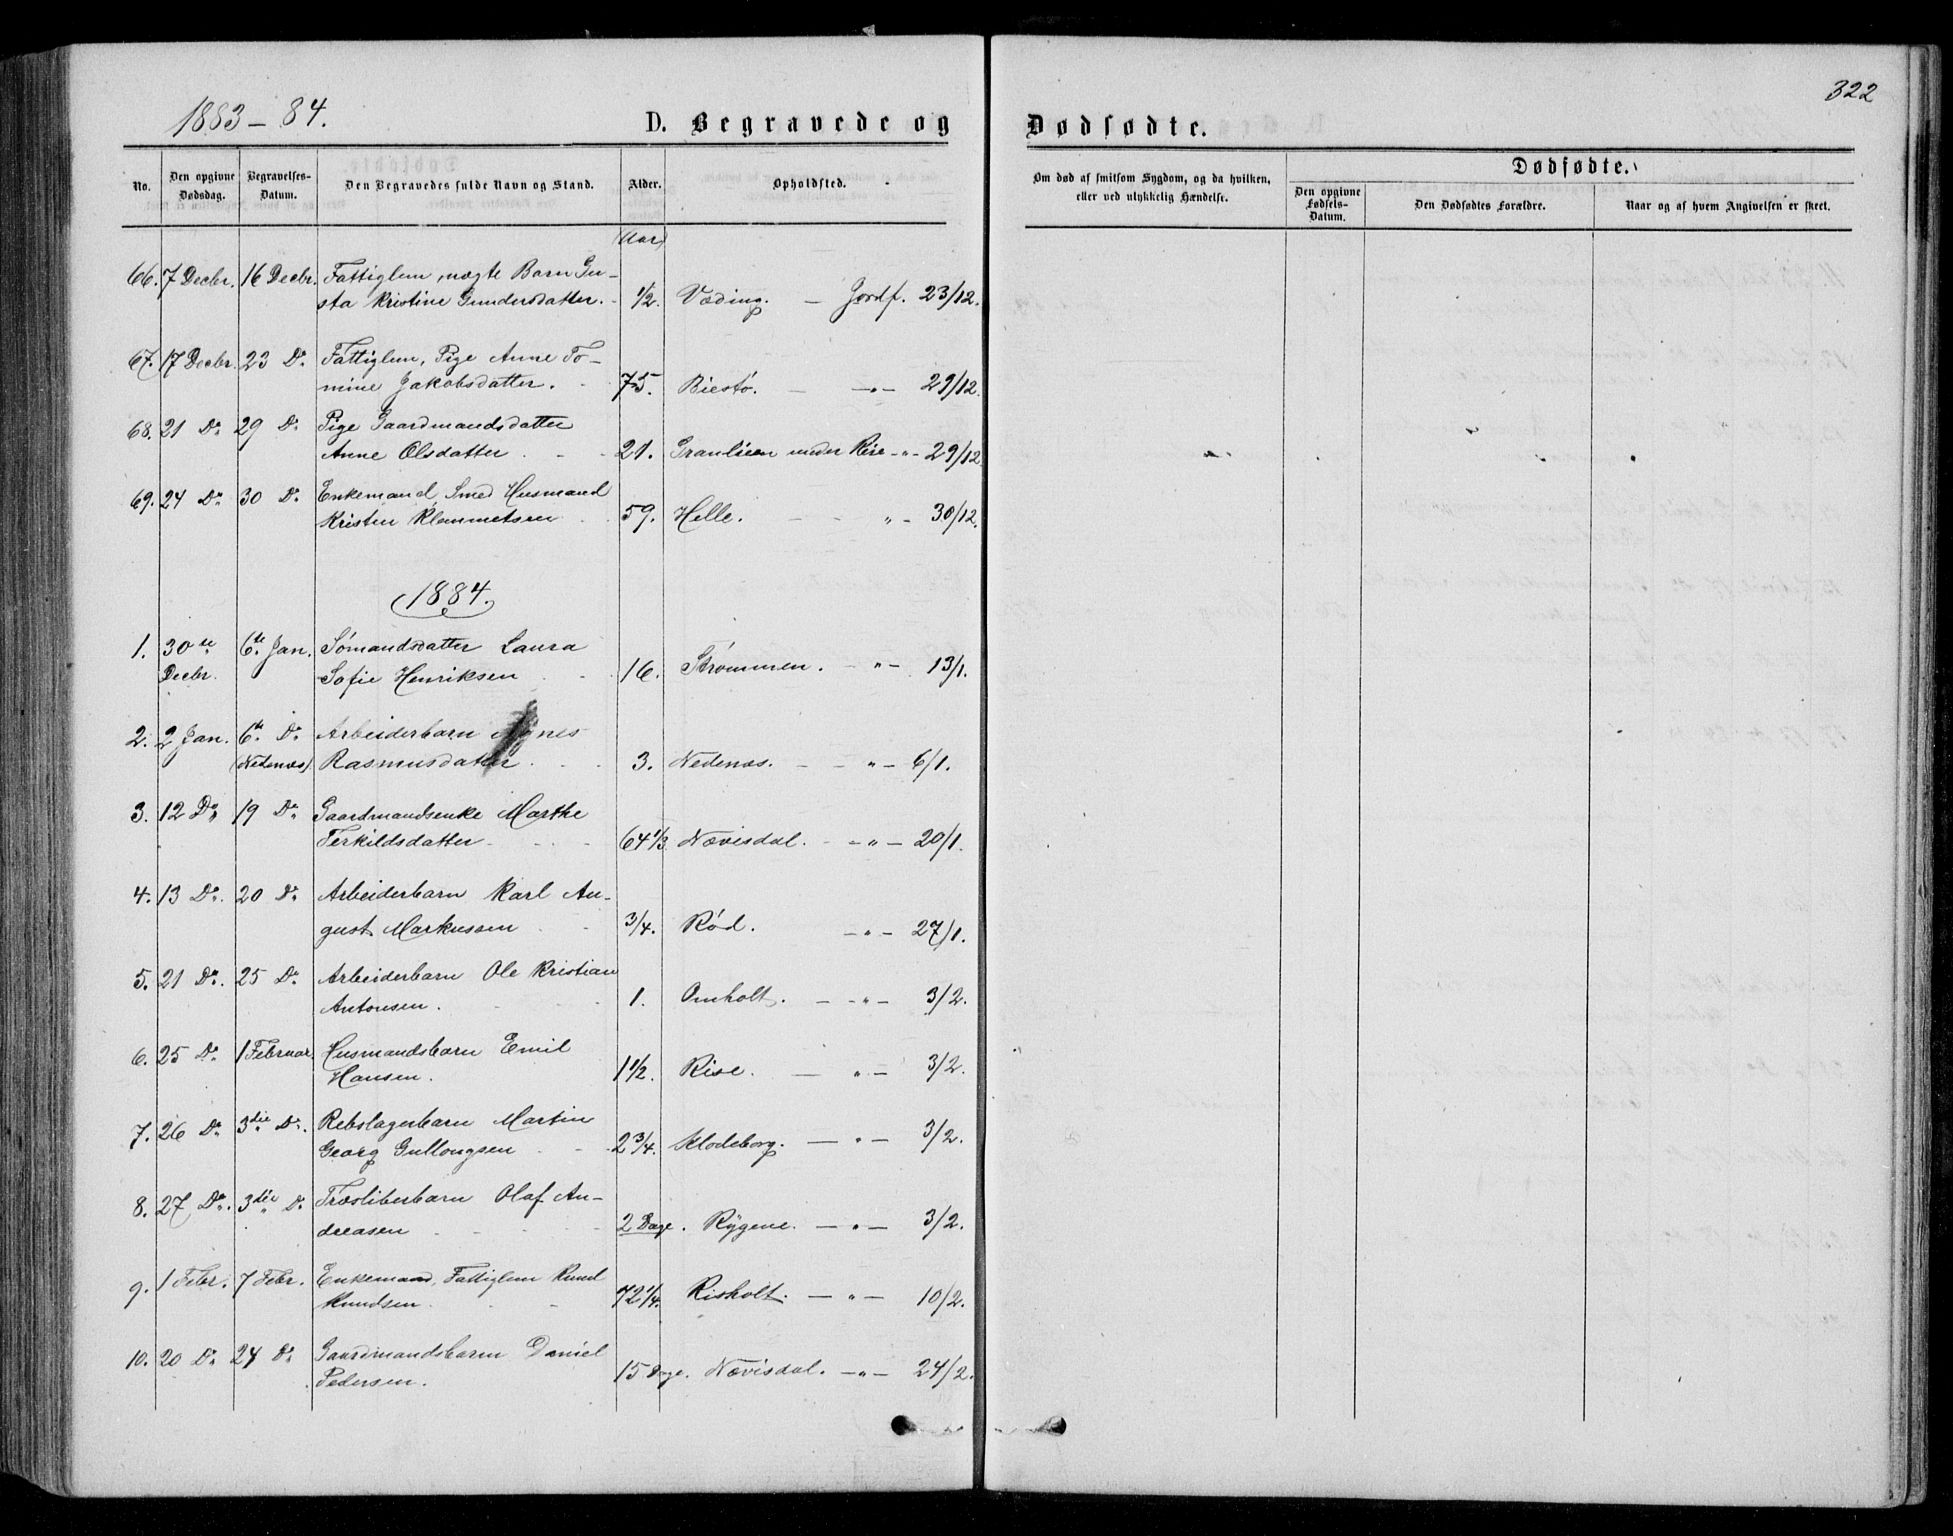 1883-84.
D. Begravede og
Dødfødte.
322
No.
Den opgivne Dødsdag.
Begravelses-Datum.
Den Begravedes fulde Navn og Stand.
Alder.
Opholdsted.
Om død af smitsom Sygdom, og da hvilken, eller ved ulykkelig Hændelse.
Dødfødte.
Den opgivne Fødsels-Datum.
Den Dødfødtes Forældre.
Naar og af hvem Angivelsen er skeet.
(Aar)
66. 7 Decbr. 16 Decbr. Fattiglem, uægte Barn Gu-
sta Kristine Gundersdatter. 1/2. Væding. — Jordf. 23/12.
67. 17 Decbr. 23 Do Fattiglem, Pige Anne To-
mine Jakobsdatter. 75. Biestø. — —"— 29/12.
68. 21 Do 29 Do Pige Gaardmandsdatter
Anne Olsdatter 21. Granlieen under Rise -"- 29/12
69. 24 Do 30 Do Enkemand, Smed Husmand
Kristen Klemmetsen 59. Helle. — "- 30/12.
1884.
1. 30te 6te Jan. Sømandsdatter Laura
Decbr. Sofie Henriksen 16. Strømmen. -"- 13/1.
2. 2 Jan. 6te Do Arbeiderbarn Agnes
(Nedenæs) Rasmusdatter 3. Nedenæs. — -"- 6/1.
3. 12 Do 19 Do Gaardmandsenke Marthe
Terkildsdatter 64 1/3 Nævisdal. -"- 20/1.
4. 13 Do. 20 Do Arbeiderbarn Karl Au-
gust Markussen 3/4. Rød. —"— 27/1.
5. 21 Do. 25 Do Arbeiderbarn Ole Kristian
Antonsen. 1. Omholt. — -"- 3/2.
6. 25 Do 1 Februar. Husmandsbarn Emil
Hansen. 1 1/2. Rise. — "- 3/2.
7. 26 Do 3die Do. Rebslagerbarn Martin
Georg Gullongsen 2 3/4. Klodeborg. — "- 3/2.
8. 27 Do. 3die Do Træsliberbarn Olaf An-
dreasen 2 Dage. Rygene. — "- 3/2.
9. 1 Febr. 7 Febr. Enkemand, Fattiglem Knud
Knudsen. 72 1/4. Risholt. — "- 10/2.
10. 20 Do 24 Do Gaardmandsbarn Daniel
Pedersen. 15 Dage. Nævisdal. —"— 24/2.